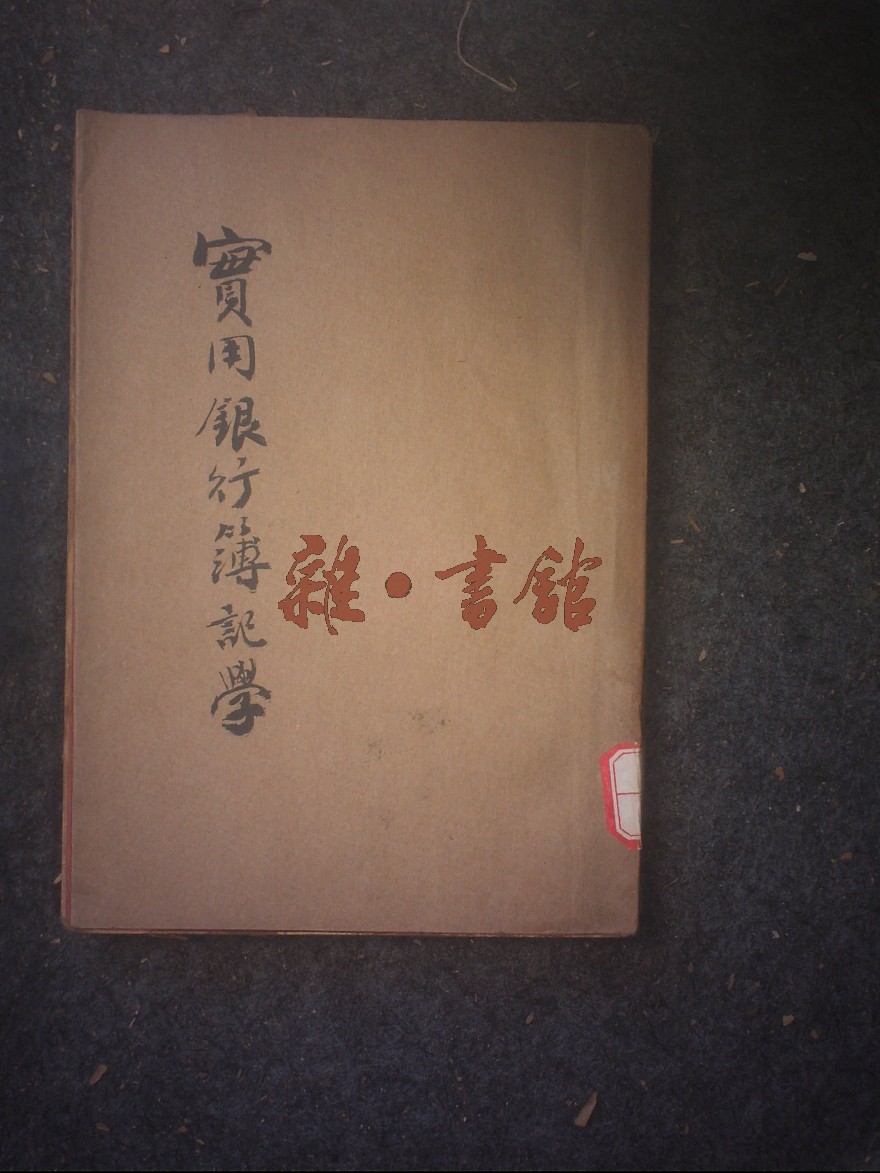 實用銀行簿記學
雜·書館